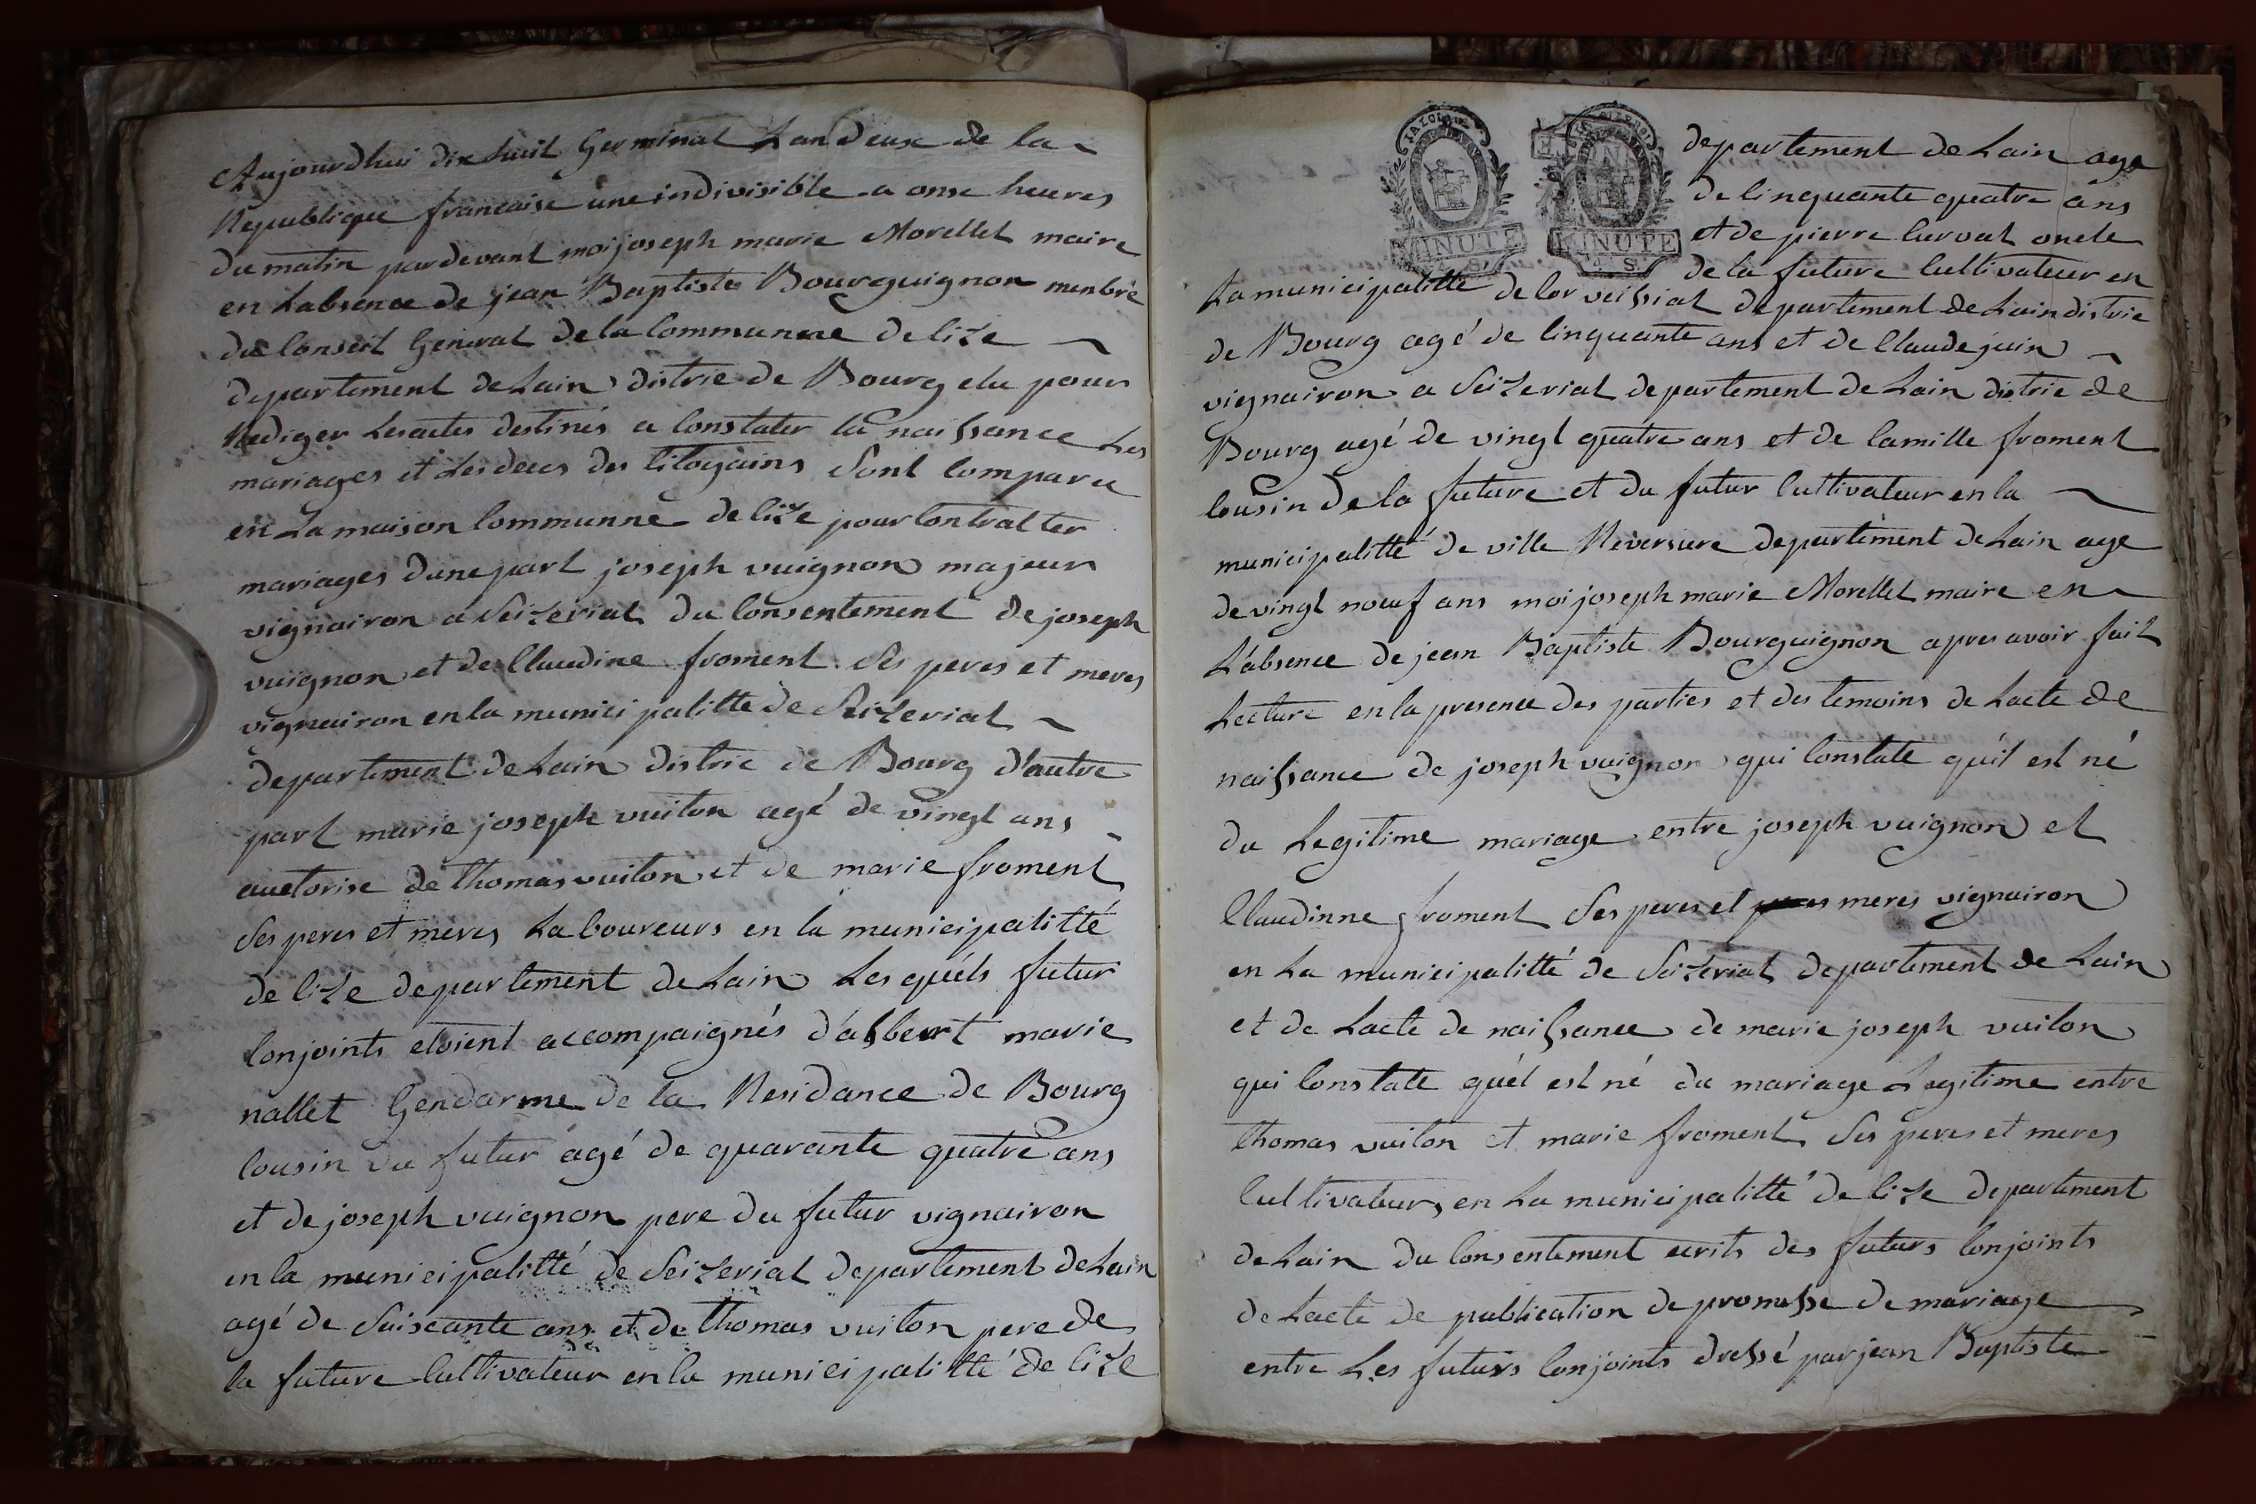 Aujourdhui dix huit Germinal Lan deux de la
Republique francaise une indivisible a onse heures
du matin pardevant moi joseph marie Morellet maire
en Labsence de jean Baptiste Bourguignon menbre
du Conseil General de la Communne de Cize
departement de Lain distric de Bourg elu pour
Rediger Les actes destinés a Constater la naissance Les
mariages et Les deces des Citoyains Sont Comparu
en La maison Communne de Cize pour Contratter
mariages dune part joseph vuignon majeur
vignairon a Seizeriat du Consentement de joseph
vuignon et de Claudine froment Ses peres et meres
vignairon en la municipalitte de Seizeriat
departement de Lain distric de Bourg d'autre
part marie joseph vuiton agé de vingt ans
auctorise de thomas vuiton et de marie froment
Ses peres et meres Laboureurs en la municipalitté
de Cize departement de Lain Les quéls futur
Conjoints etoient accompaignés d'albeurt marie
nallet Gendarme de la Residance de Bourg
Cousin du futur agé de quarante quatre ans
et de joseph vuignon pere du futur vignairon
en la municipalitté de Seizeriat departement de Lain
agé de Soiscante ans et de thomas vuiton pere de
la future Cultivateur en la municipalitté de Cize
TA LOI
MINUTE
S.
MINUTE
S.
departement de Lain age
de Cinquante quatre ans
et de pierre Curvat oncle
de la future Cultivateur en
La municipalitté de Corveissiat departement de Lain distric
de Bourg agé de Cinquante ans et de Claude juin
vignairon a Seizeriat departement de Lain distric de
Bourg agé de vingt quatre ans et de Camille froment
Cousin de la future et du futur Cultivateur en la
municipalitté de ville Reversure departement de Lain age
de vingt noeuf ans moi joseph marie Morellet maire en
L'absence de jean Baptiste Bourguignon apres avoir fait
Lecture en la presence des parties et des temoins de Lacte de
naissance de joseph vuignon qui Constate qu'il est né
du Legitime mariage entre joseph vuignon et
Claudinne froment Ses peres et meres vignairon
en La municipalitté de Seizeriat departement de Lain
et de Lacte de naissance de marie joseph vuiton
qui Constate quél est né du mariage Legitime entre
thomas vuiton et marie froment Ses peres et meres
Cultivateurs en La municipalitté de Cize departement
de Lain du Consentement ecrits des futurs Conjoints
de Lacte de publication de promesse de mariage
entre Les futurs Conjoints dressé par jean Baptiste